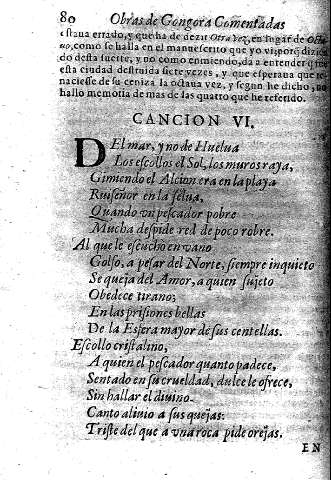 80 Obras de Gongora Comentadas
esta una errado, y que ha de dezir Otra vez, en lugar de Octa
no, como se halla en el manuscrito que yo vi, porq̃ dizien
do desta suerte, y no como enmiendo, da a entender q̃ fue
esta ciudad destruida siete vezes, y que esperana que re
naciesse de su ceniza la octaua vez, y segun he dicho, no
hallo memoria de mas de las quatro que he referido.
CANCION VI.
DEl mar, y no de Huelua
Los escollos el Sol, los muros raya,
Gimiendo el Alcion era en la playa
Ruiseñor en la selua,
Quando vn pescador pobre
Mucha despide red de poco robre.
Al que le escucho en vano
Golfo, a pesar del Norte, siempre inquieto
Se queja del Amor, a quien sujeto
Obedece tirano;
En las prisiones bellas
De la Esfera mayor de sus centellas.
Escollo cristalino,
A quien el pescador quanto padece,
Sentado en su crueldad, dulce le ofrece,
Sin hallar el diuino
Canto aliuio a sus quejas:
Triste del que a vna roca pide orejas.
EN